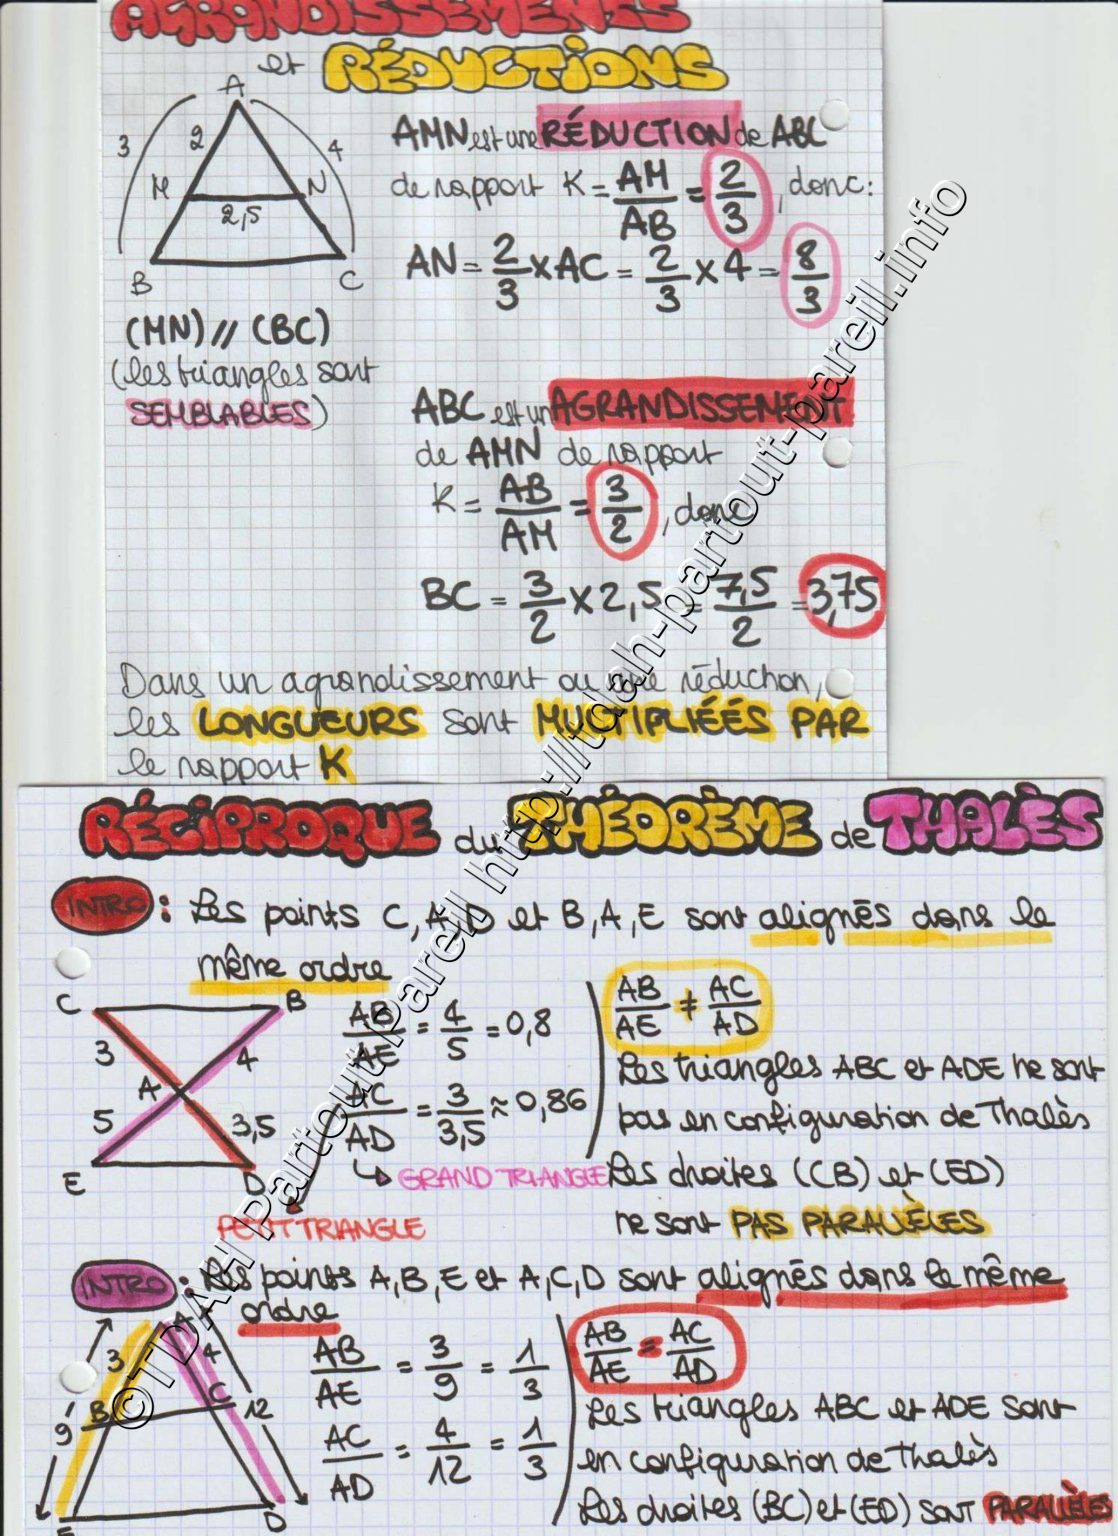 AGRANDISSEMENTS
et RÉDUCTIONS
A
3
2
4
M
N
2,5
B
C
(MN) // (BC)
(les triangles sont
SEMBLABLES)
AMN est une RÉDUCTION de ABC
de rapport K = AM/AB = 2/3, donc:
AN = 2/3 x AC = 2/3 x 4 = 8/3
ABC est un AGRANDISSEMENT
de AMN de rapport
K = AB/AM = 3/2, donc
BC = 3/2 x 2,5 = 7,5/2 = 3,75
Dans un agrandissement ou une réduction,
les LONGUEURS sont MULTIPLIÉÉS PAR
le rapport K
RÉCIPROQUE du THÉORÈME de THALÈS
INTRO : Les points C, A, D et B, A, E sont alignés dans le
même ordre
C
B
3
4
A
5
3,5
E
D
AB/AE = 4/5 = 0,8
AC/AD = 3/3,5 ≈ 0,86
GRAND TRIANGLE
PETIT TRIANGLE
AB/AE ≠ AC/AD
Les triangles ABC et ADE ne sont
pas en configuration de Thalès
Les droites (CB) et (ED)
ne sont PAS PARALLÈLES
INTRO : Les points A, B, E et A, C, D sont alignés dans le même
ordre
A
3
4
B
C
9
12
E
D
AB/AE = 3/9 = 1/3
AC/AD = 4/12 = 1/3
AB/AE = AC/AD
Les triangles ABC et ADE sont
en configuration de Thalès
Les droites (BC) et (ED) SONT PARALLÈLES
©TDAH Partout Pareil http://tdah-partout-pareil.info